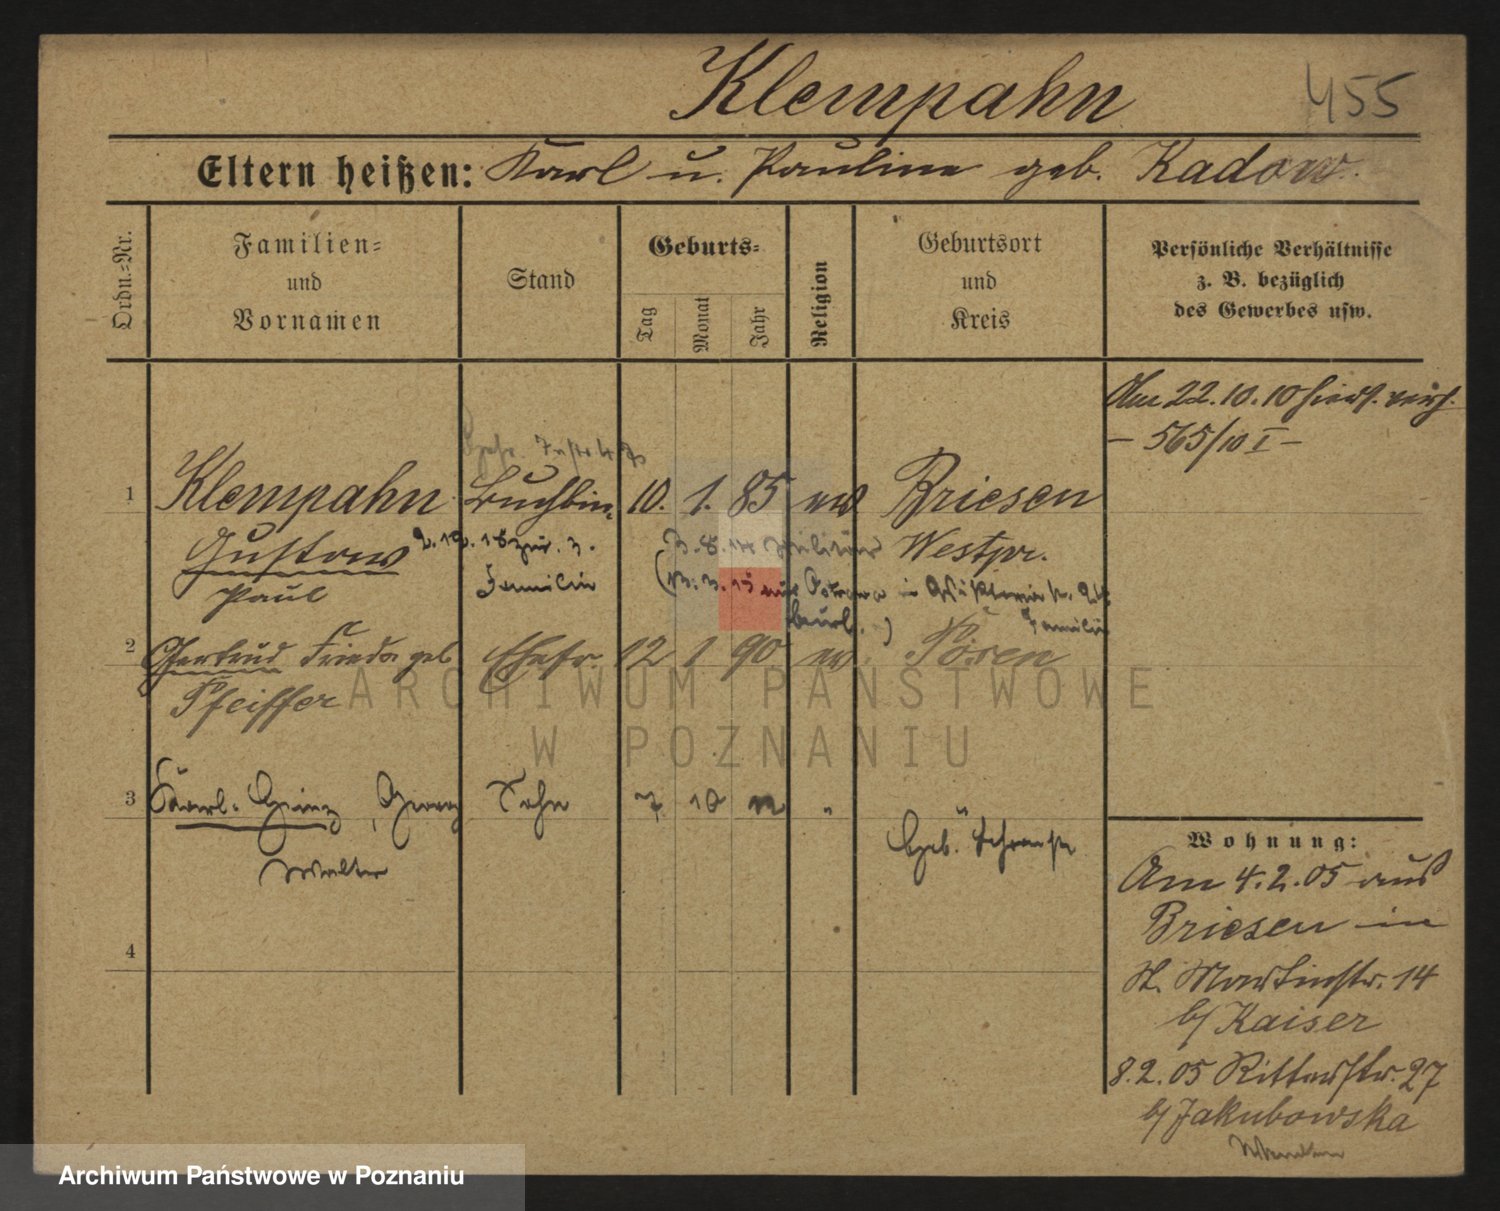 Klempahn
455
Eltern heißen: Karl u. Pauline geb. Kadow.
Ordn.-Nr.
Familien-
und
Vornamen
Stand
Geburts-
Tag
Monat
Jahr
Religion
Geburtsort
und
Kreis
Persönliche Verhältnisse
z. B. bezüglich
des Gewerbes usw.
Am 22.10.10 hier
— 565/10 I —
1 Klempahn Buchbin. 10. 1. 85 ev Briesen
Gustav 2.12.18 zur. z. 3.8.14 Militär Westpr.
Paul Familie aus in
beurl. Familie
2 Gertrud Frieda geb Ehefr. 12 1 90 ev. Posen
Pfeiffer
ARCHIWUM PAŃSTWOWE
W POZNANIU
3 Karl-Heinz, Georg Sohn 7 10 "
Walter
4
Wohnung:
Am 4.2.05 aus
Briesen in
St. Martinstr. 14
b/ Kaiser
8.2.05 Ritterstr. 27
b/ Jakubowska
Archiwum Państwowe w Poznaniu